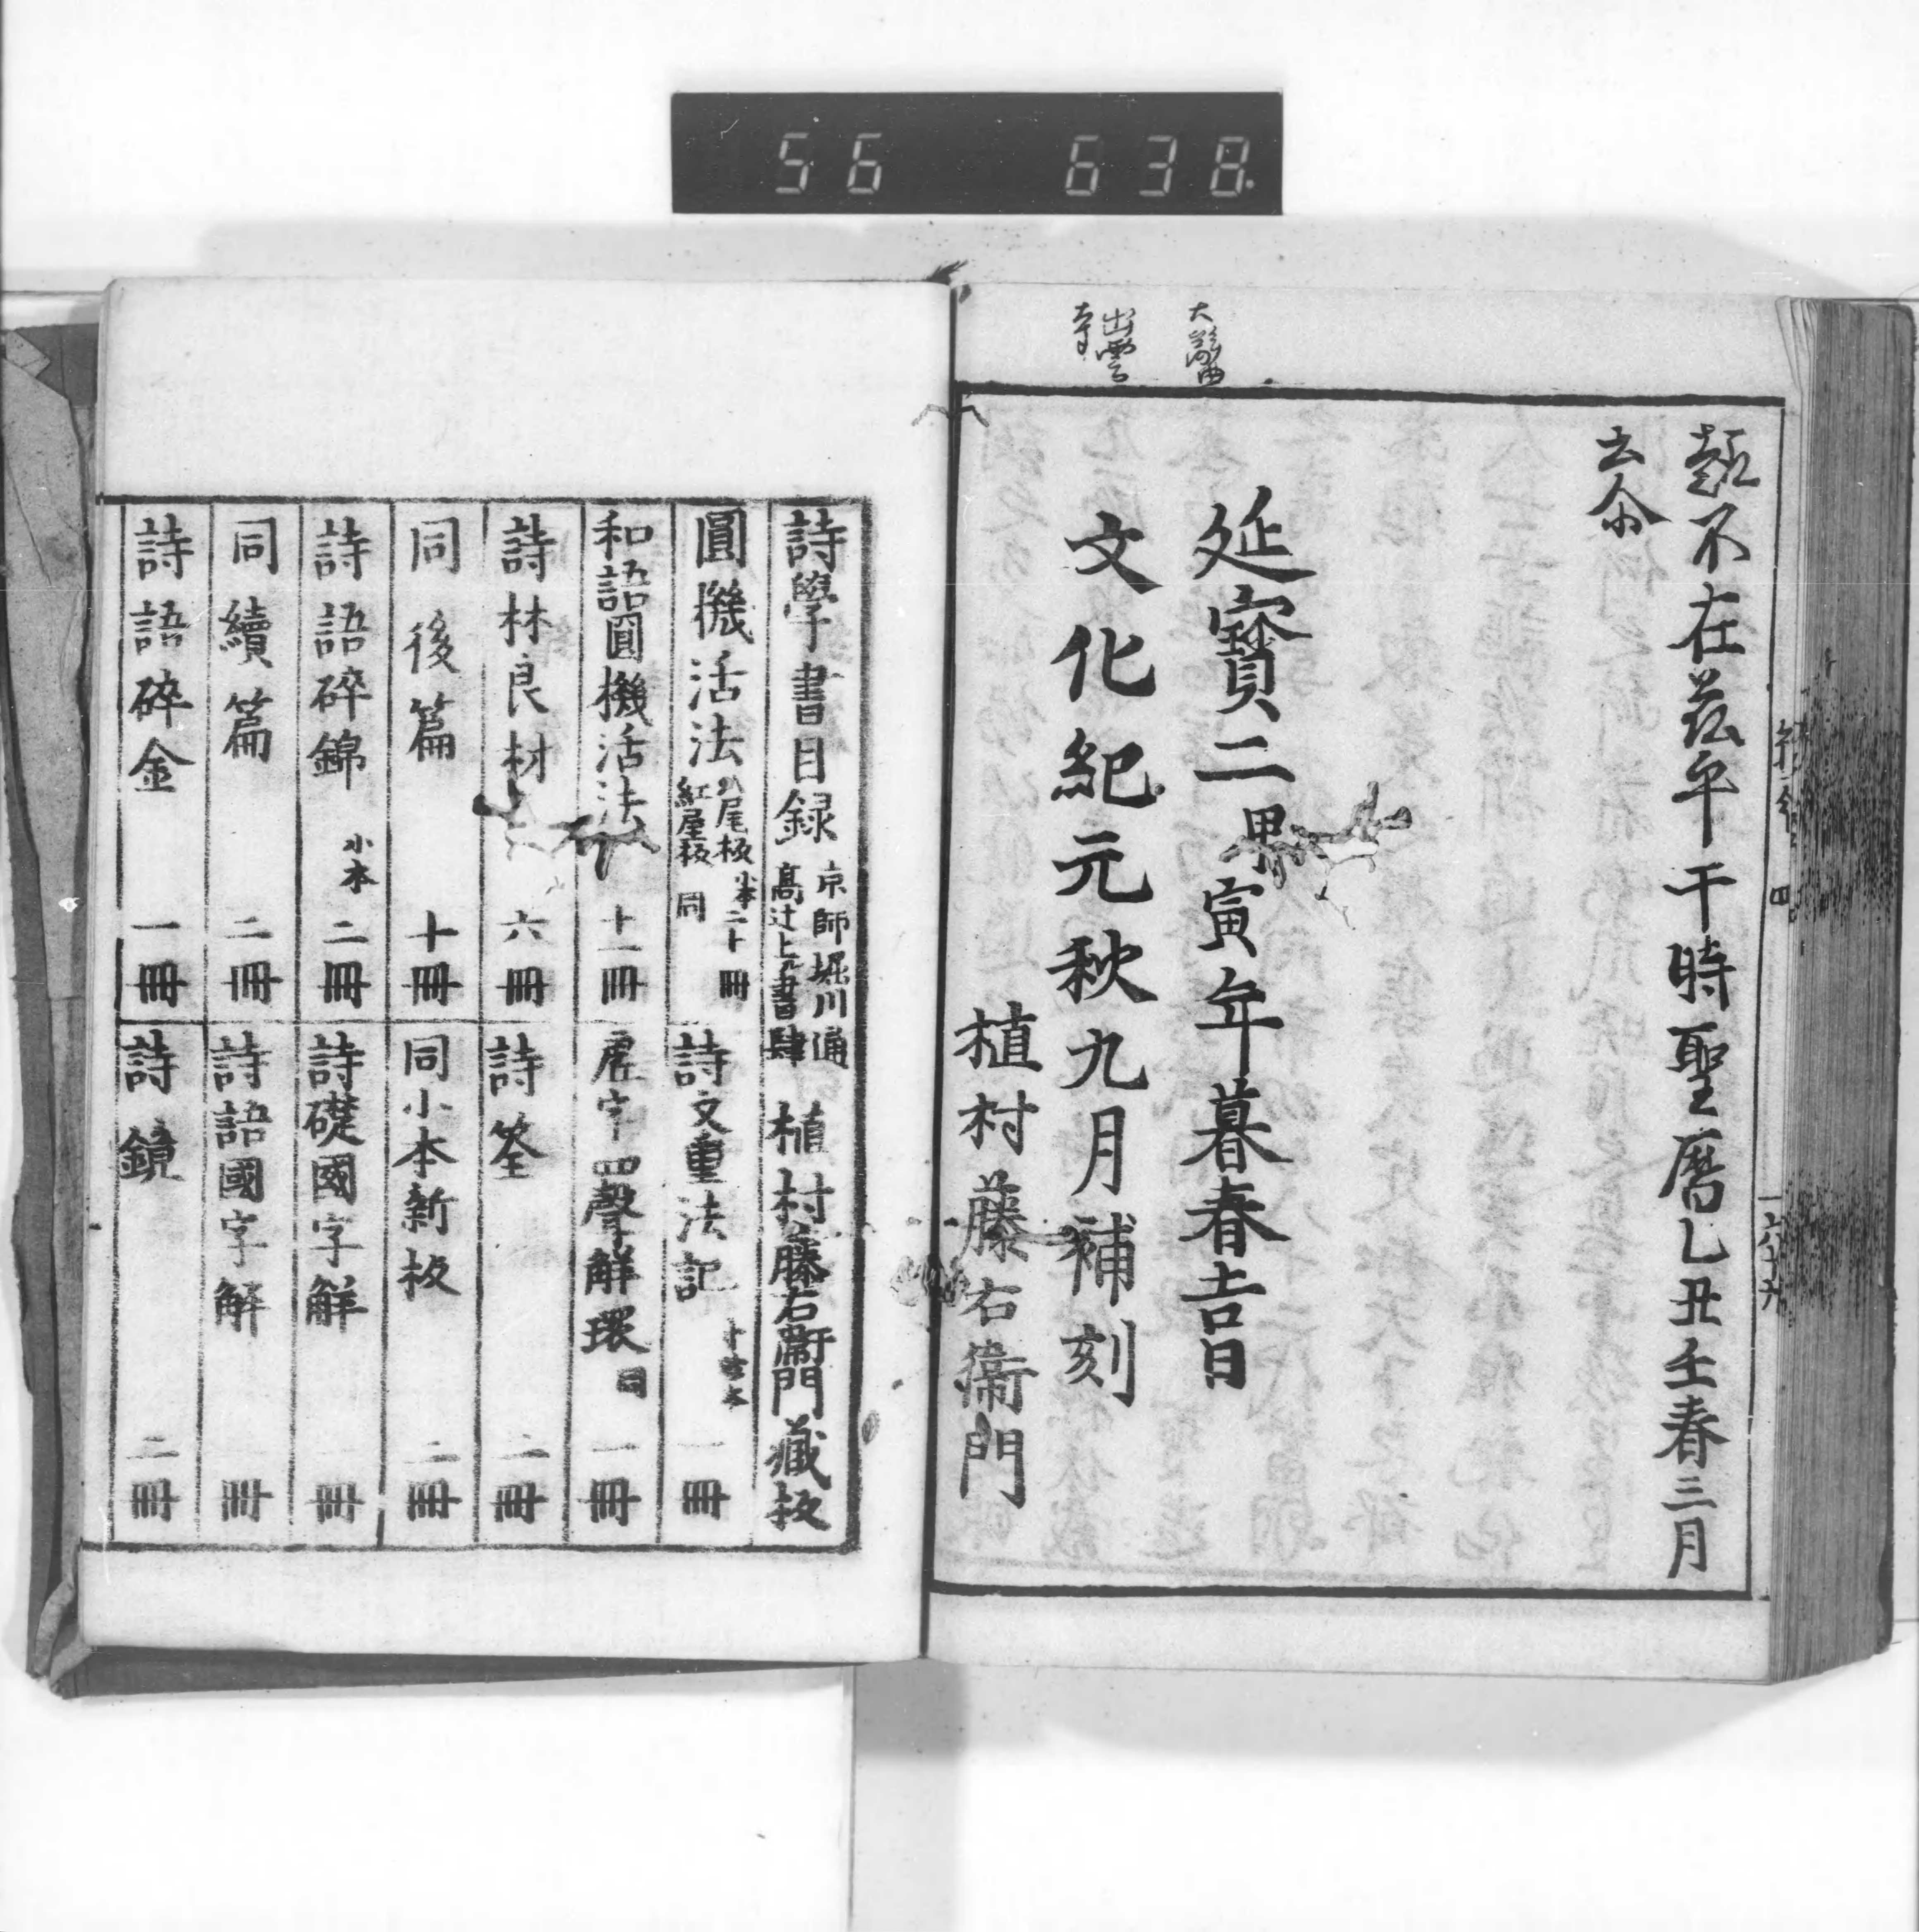 56 638
大
出雲
寺
題不在茲乎干時聖曆乙丑壬春三月
云尒
延寶二甲寅年暮春吉日
文化紀元秋九月補刻
植村藤右衞門
詩學書目録 京師堀川通
高辻上ル書肆 植村藤右衞門藏板
圓機活法 八尾板 小本二十冊
紅屋板 同
詩文重法記 一冊
和語圓機活法 十一冊
虛字四聲解環 同 一冊
詩林良材 六冊
詩筌 二冊
同後篇 十冊
同小本新板 二冊
詩語碎錦 小本 二冊
詩礎國字解 一冊
同續篇 二冊
詩語國字解 冊
詩語碎金 一冊
詩鏡 二冊